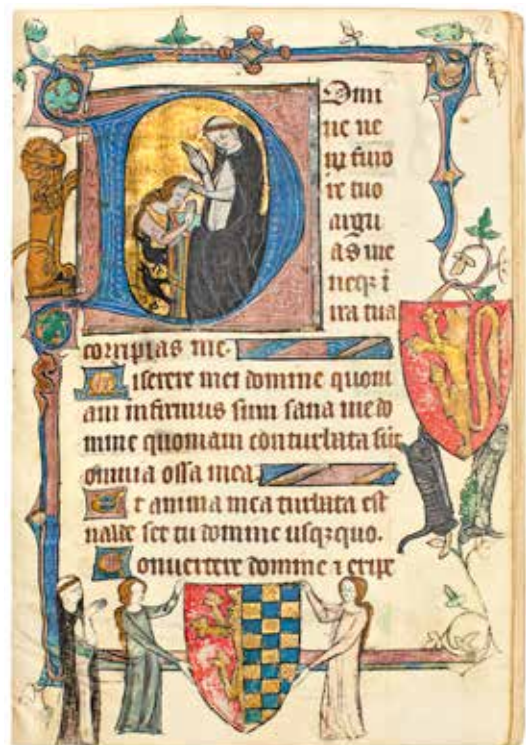 Domi
ne ne
in furo
re tuo
argu
as me
neqꝫ ī
ira tua
corripias me.
Miserere mei domine quoni
am infirmus sum sana me do
mine quoniam conturbata sūt
omnia ossa mea.
Et anima mea turbata est
ualde set tu domine usqꝫquo.
Conuertere domine ⁊ eripe